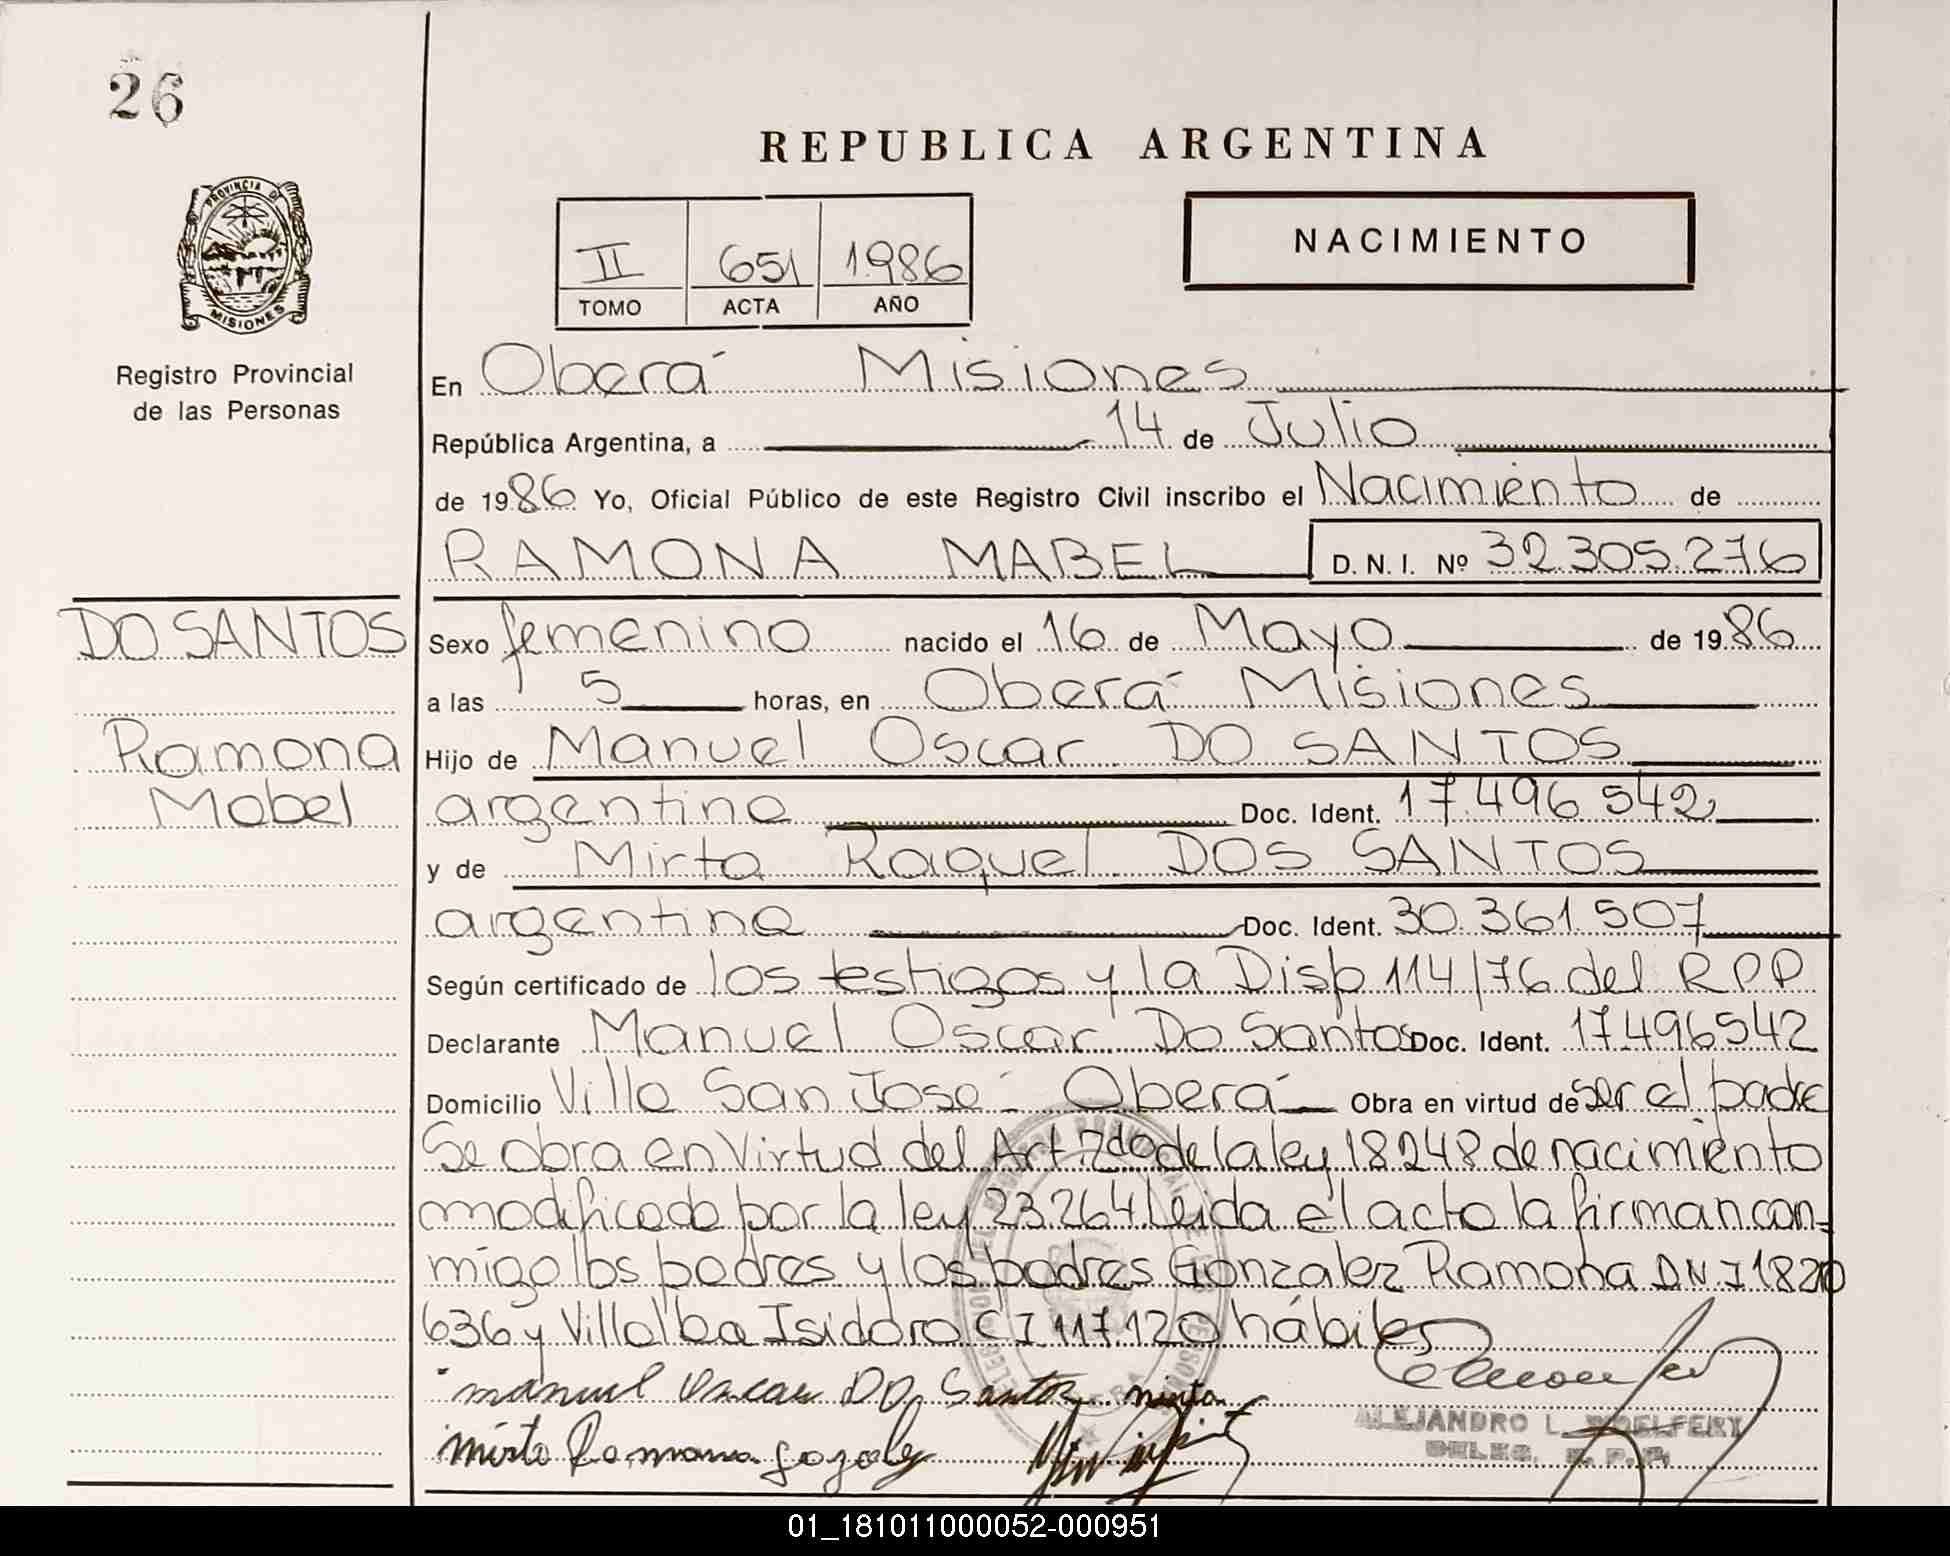 26
REPUBLICA ARGENTINA
PROVINCIA D
MISIONES
II 651 1986
TOMO ACTA AÑO
NACIMIENTO
Registro Provincial
de las Personas
En Oberá Misiones
República Argentina, a 14 de Julio
de 1986 Yo, Oficial Público de este Registro Civil inscribo el Nacimiento de
RAMONA MABEL D. N. I. Nº 32.305.276
DO SANTOS
Ramona
Mabel
Sexo femenino nacido el 16 de Mayo de 1986
a las 5 horas, en Oberá Misiones
Hijo de Manuel Oscar DO SANTOS
argentino Doc. Ident. 17.496.542
y de Mirta Raquel DOS SANTOS
argentina Doc. Ident. 30.361.507
Según certificado de los testigos y la Disp 114/76 del RPP
Declarante Manuel Oscar Do Santos Doc. Ident. 17.496542
Domicilio Villa San José - Oberá Obra en virtud de ser el padre
Se obra en Virtud del Art. 2do de la ley 18248 de nacimiento
modificado por la ley 23.264 Leida el acto la firman con-
migo los padres y los padres Gonzalez Ramona DNI 1820
636 y Villalba Isidoro CI 117.120 hábiles
manuel Oscar DO Santos mirta
mirta Ramona gozalez
ALEJANDRO L.
DELEG. R. P. P.
01_181011000052-000951